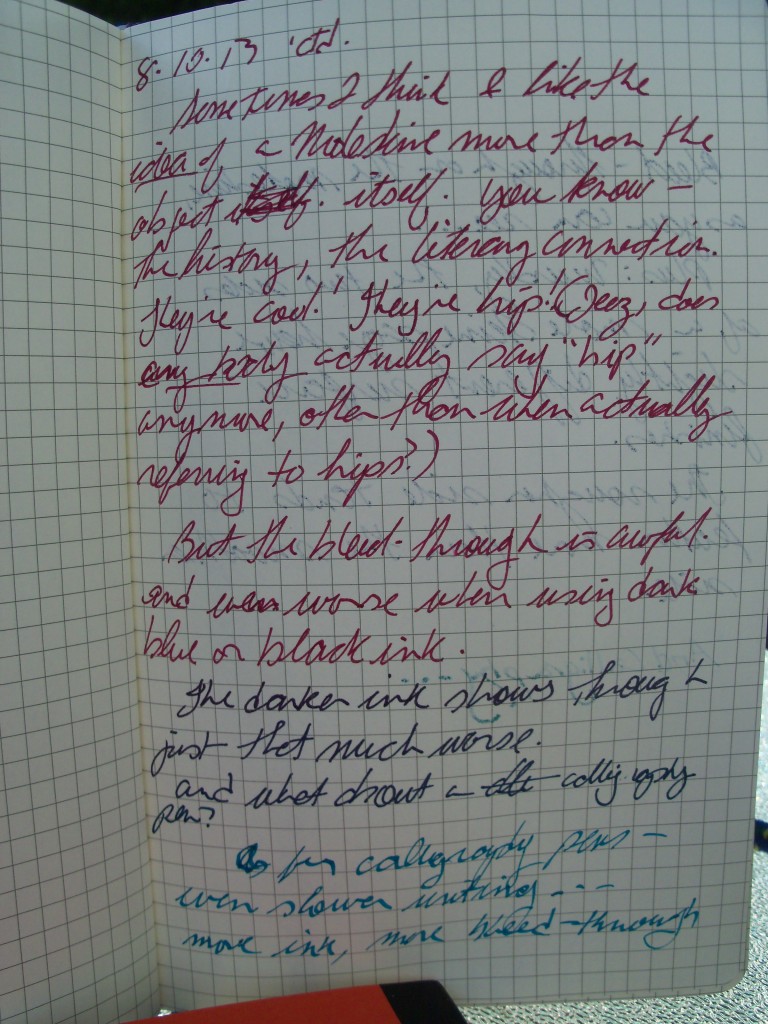 8.10.13 'ctd.
Sometimes I think I like the
idea of a Moleskine more than the
object itself. itself. You know –
the history, the literary connection.
They're cool! They're hip! (Jeez, does
any body actually say "hip"
anymore, other than when actually
referring to hips?)
But the bleed-through is awful.
and even worse when using dark
blue or black ink.
The darker ink shows through
just that much worse.
and what about a calligraphy
pen?
As for calligraphy pens –
even slower writing ---
more ink, more bleed-through